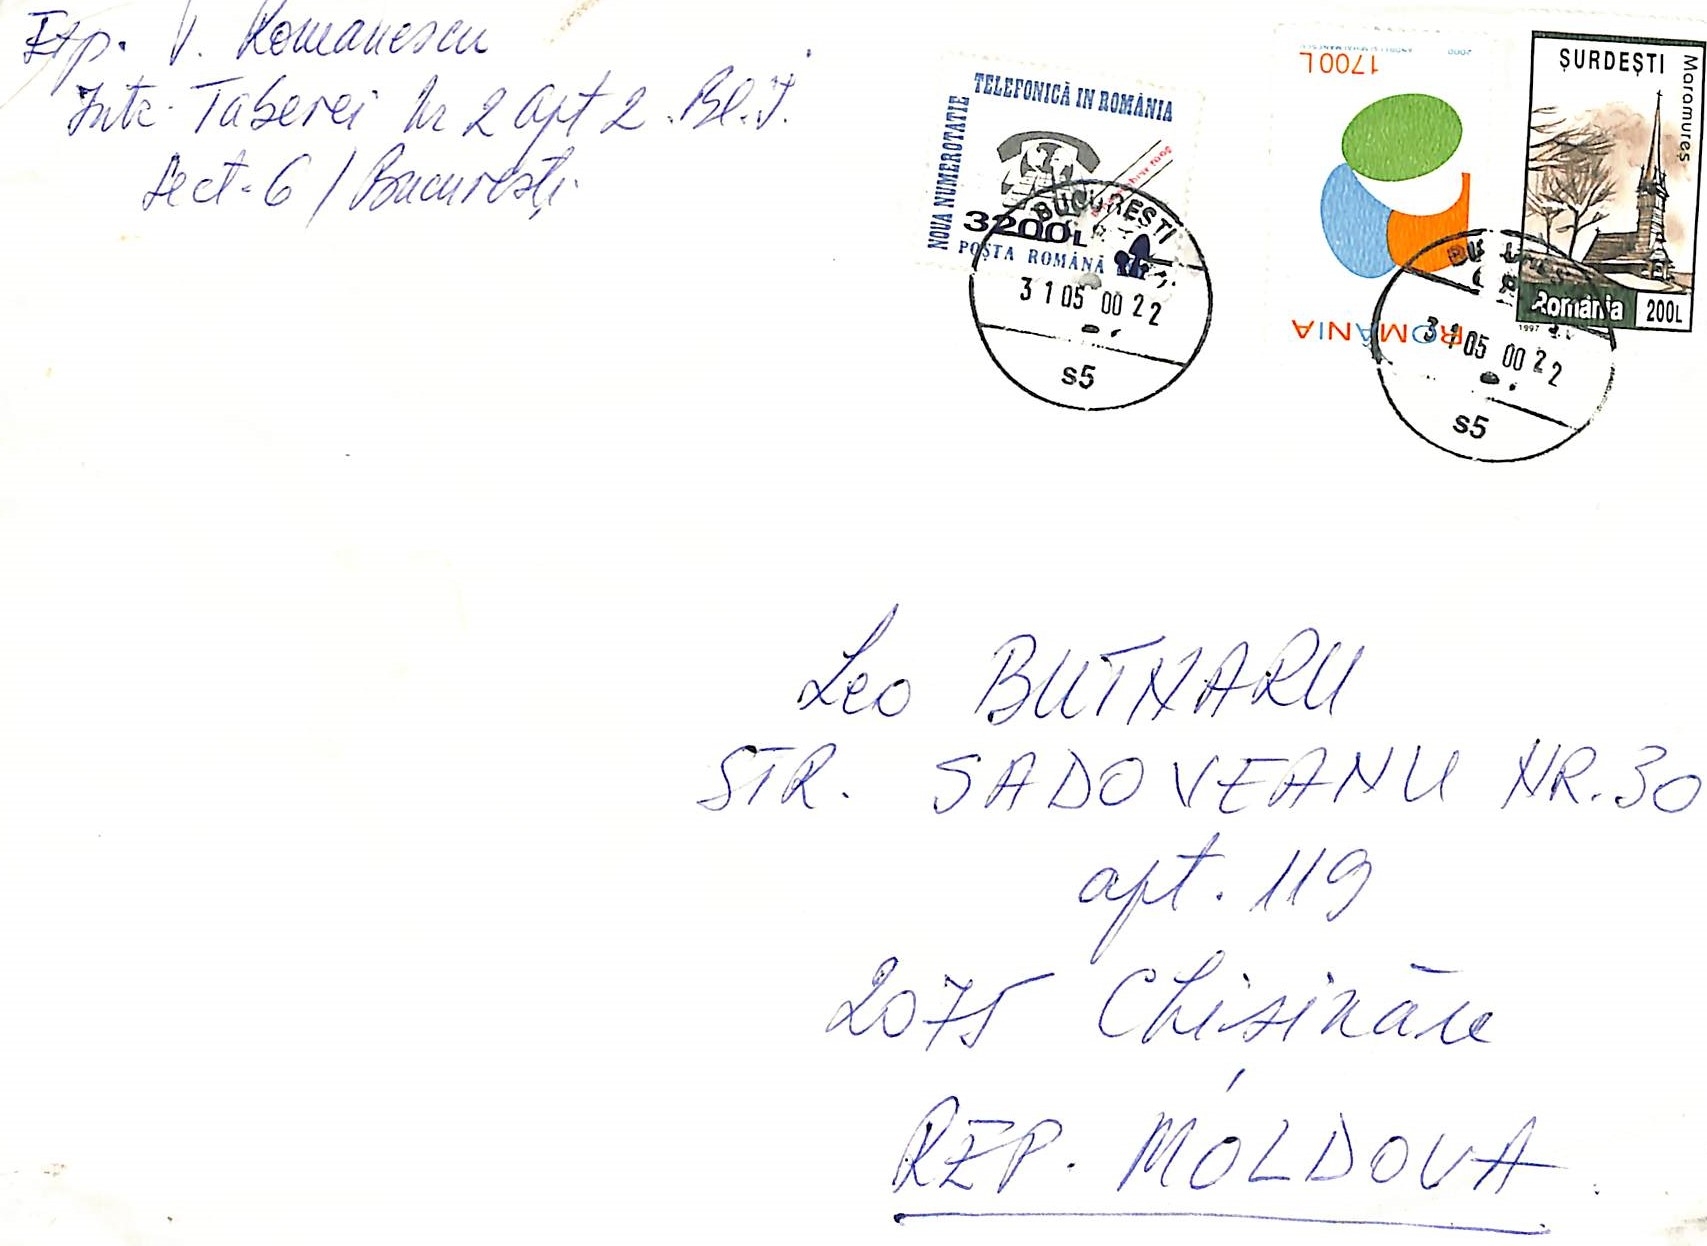 Exp. V. Romanescu
Intr. Taberei Nr 2 apt 2. Bl. I.
Sect. 6 / București
TELEFONICĂ IN ROMÂNIA
NOUA NUMEROTATIE
3200L
POȘTA ROMÂNĂ
BUCUREȘTI
31 05 00 22
s5
2000
1700L
ROMÂNIA
31 05 00 22
s5
ȘURDEȘTI
Maramureș
România
200L
1997
Leo BUTNARU
STR. SADOVEANU NR. 30
apt. 119
2075 Chișinău
REP. MOLDOVA